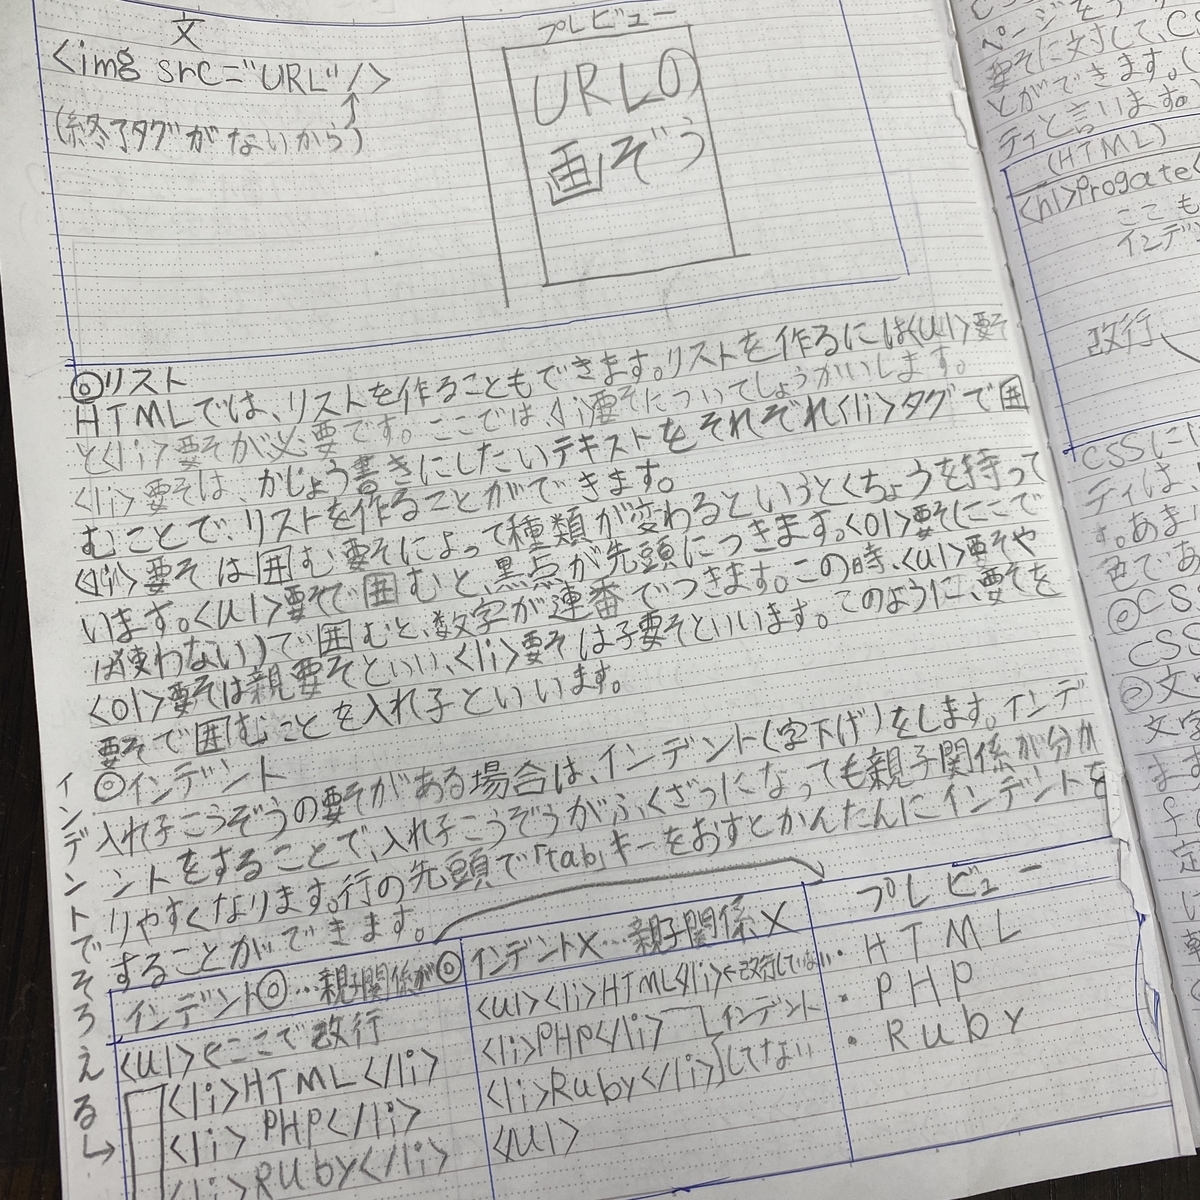 文
<img src="URL"/>
(終了タグがないから)
プレビュー
URLの
画ぞう
◎リスト
HTMLでは、リストを作ることもできます。リストを作るには<ul>要そ
と<li>要そが必要です。ここでは、<li>要そについてしょうかいします。
<li>要そは、かじょう書きにしたいテキストをそれぞれ<li>タグで囲
むことで、リストを作ることができます。
<li>要そは囲む要そによって種類が変わるというとくちょうを持って
います。<ul>要そで囲むと、黒点が先頭につきます。<ol>要そ(ここで
は使わない)で囲むと、数字が連番でつきます。この時、<ul>要そや
<ol>要そは親要そといい、<li>要そは子要そといいます。このように、要そを
要そで囲むことを入れ子といいます。
◎インデント
入れ子こうぞうの要そがある場合は、インデント(字下げ)をします。インデ
ントをすることで、入れ子こうぞうがふくざつになっても親子関係が分か
りやすくなります。行の先頭で「tab」キーをおすとかんたんにインデントを
することができます。
インデントでそろえる→
インデント◎…親子関係が◎
<ul>←ここで改行
<li>HTML</li>
<li>PHP</li>
<li>Ruby</li>
インデント×…親子関係×
<ul><li>HTML</li>←改行していない
<li>PHP</li>
<li>Ruby</li>
インデント
してない
<ul>
プレビュー
・HTML
・PHP
・Ruby
ページを
要そに対して、CS
とができます。(
ティと言います。
(HTML)
<h1>Progate<
ここも
インデ
改行
CSSに
ティは、
す。あま
色であ
◎CS
CSS
◎文
文字
ます
f
定